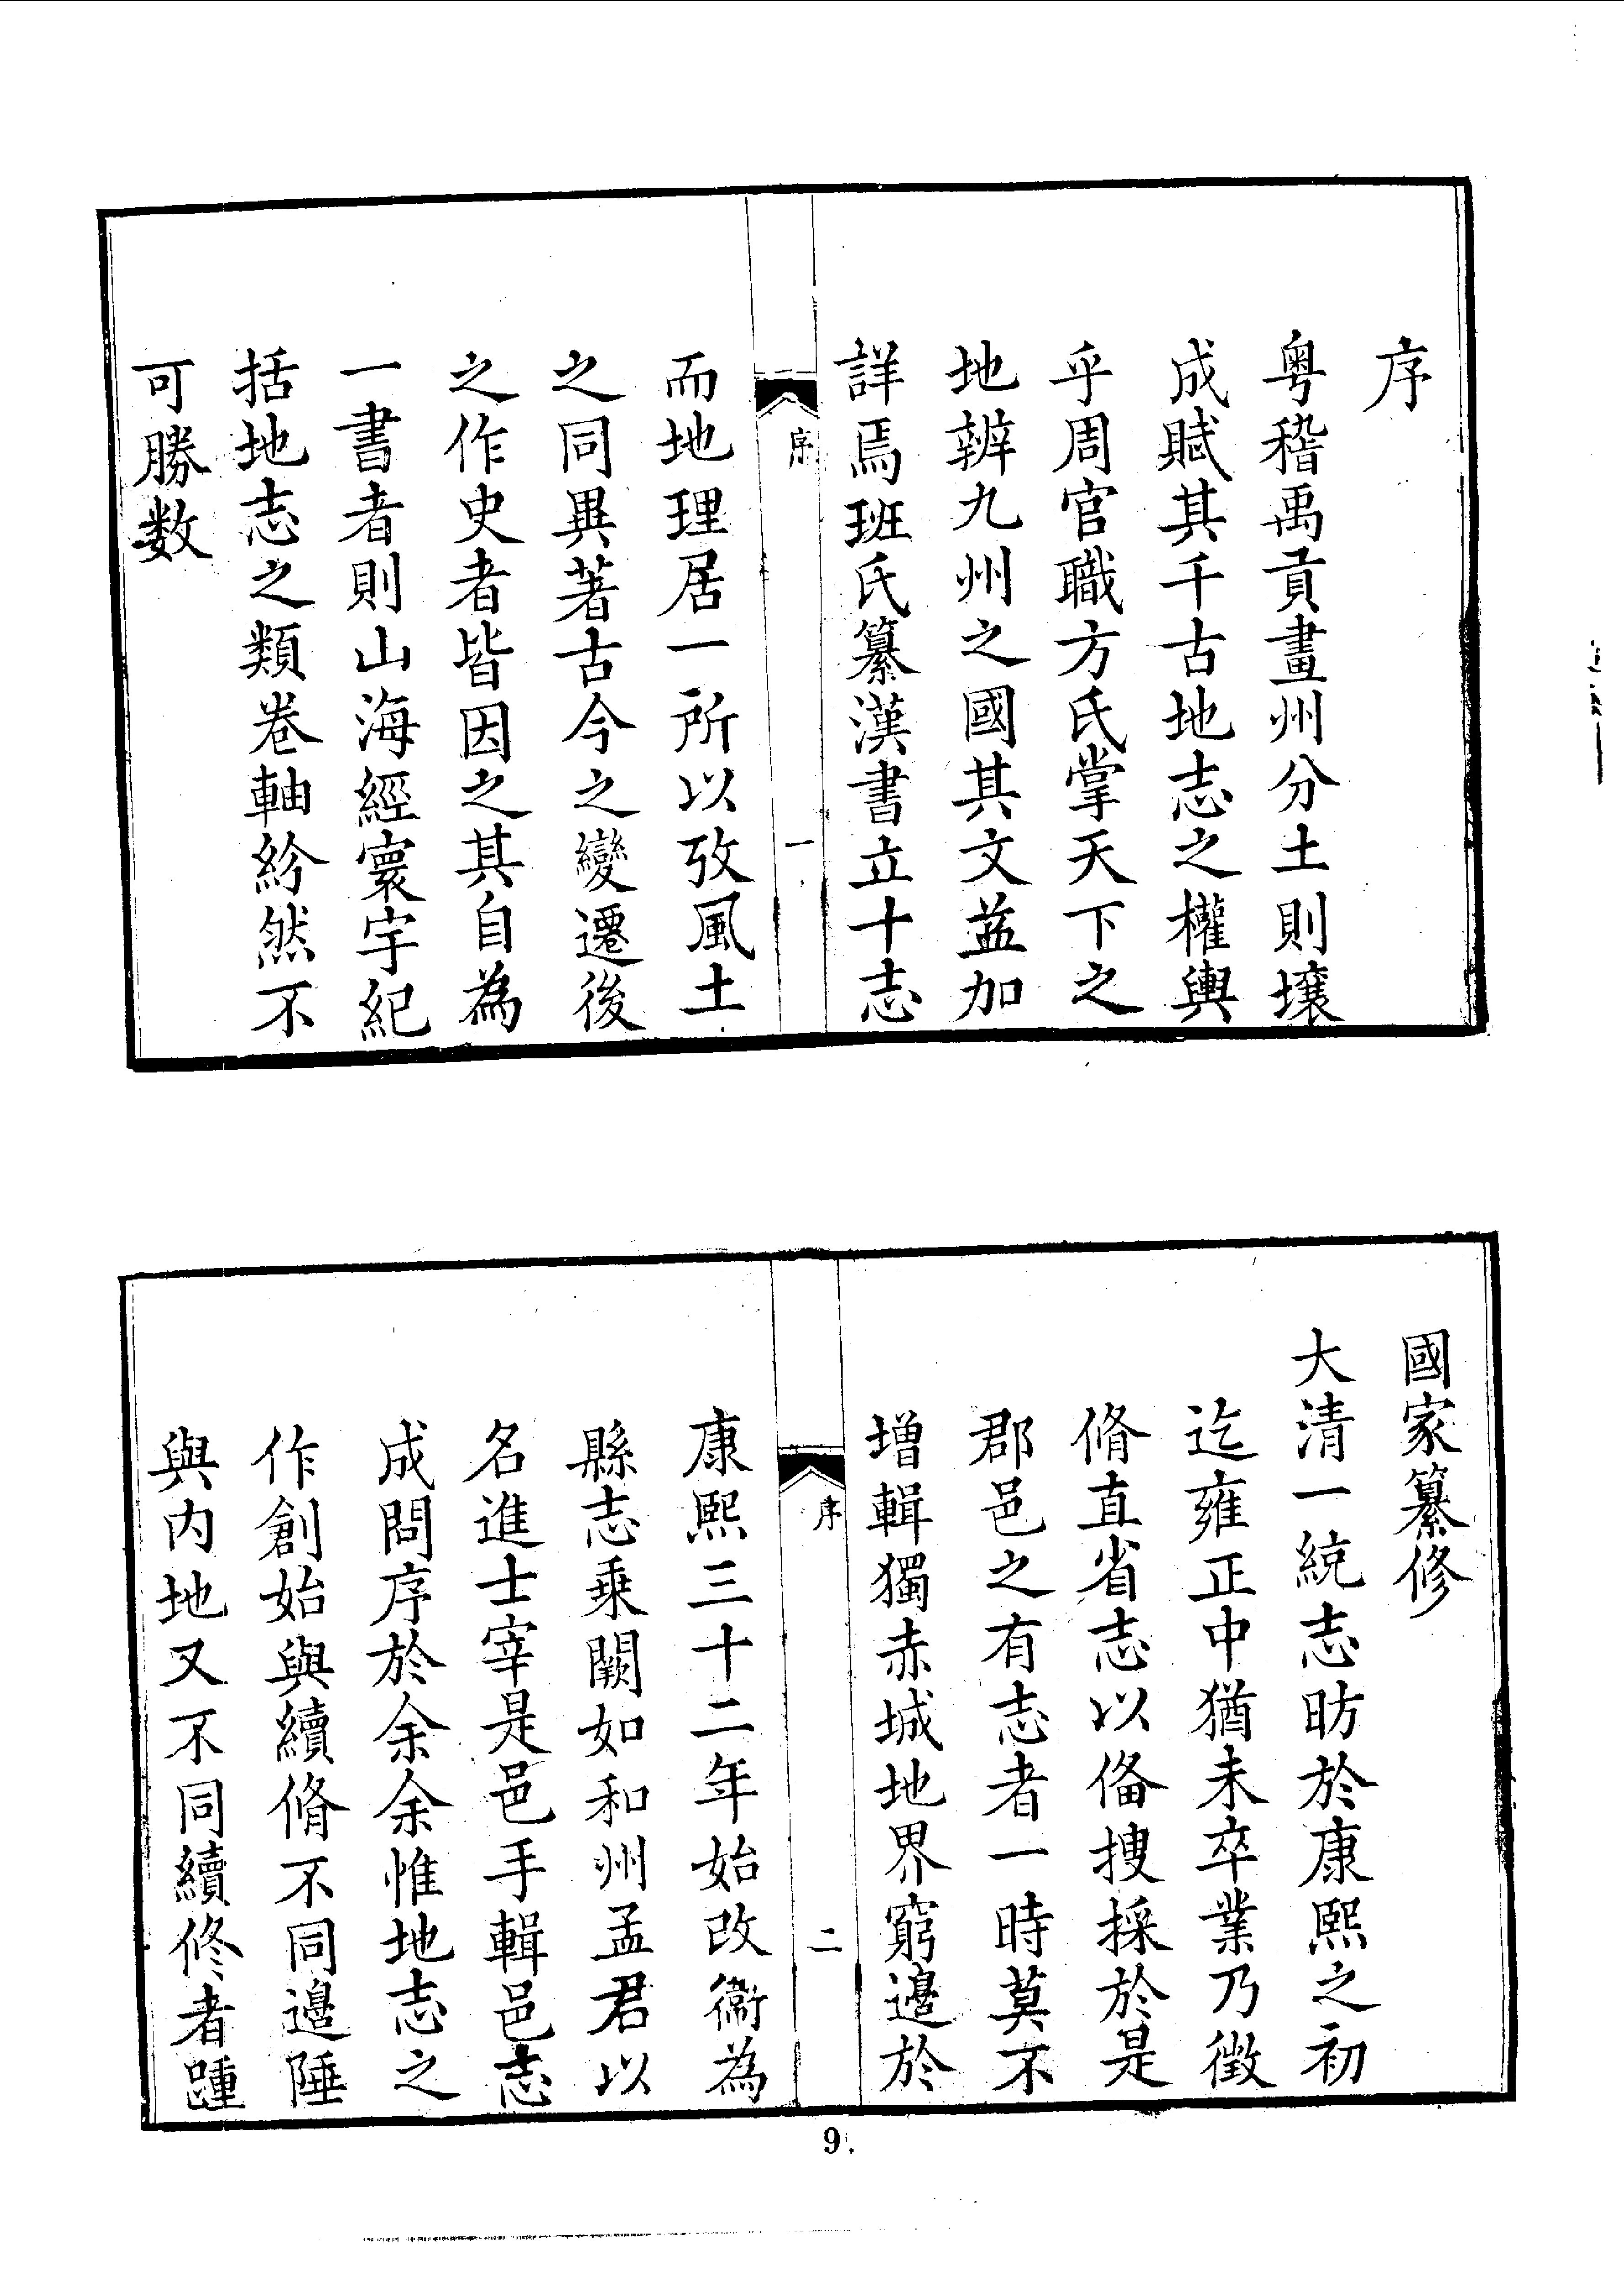 序
粤稽禹貢畫州分土則壤
成賦其千古地志之權輿
乎周官職方氏掌天下之
地辨九州之國其文益加
詳焉班氏纂漢書立十志
序
一
而地理居一所以攷風土
之同異著古今之變遷後
之作史者皆因之其自為
一書者則山海經寰宇紀
括地志之類卷軸紛然不
可勝数
國家纂修
大清一統志昉於康熙之初
迄雍正中猶未卒業乃徵
脩直省志以俻搜採於是
郡邑之有志者一時莫不
增輯獨赤城地界窮邊於
序
二
康熙三十二年始改衛為
縣志乗闕如和州孟君以
名進士宰是邑手輯邑志
成問序於余余惟地志之
作創始與續脩不同邉陲
與内地又不同續修者踵
9